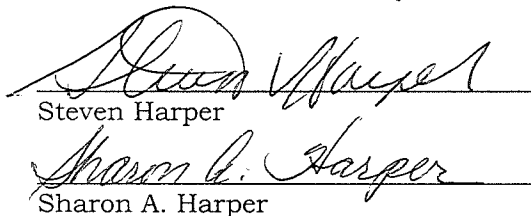 Steven Harper
Steven Harper
Sharon A. Harper
Sharon A. Harper